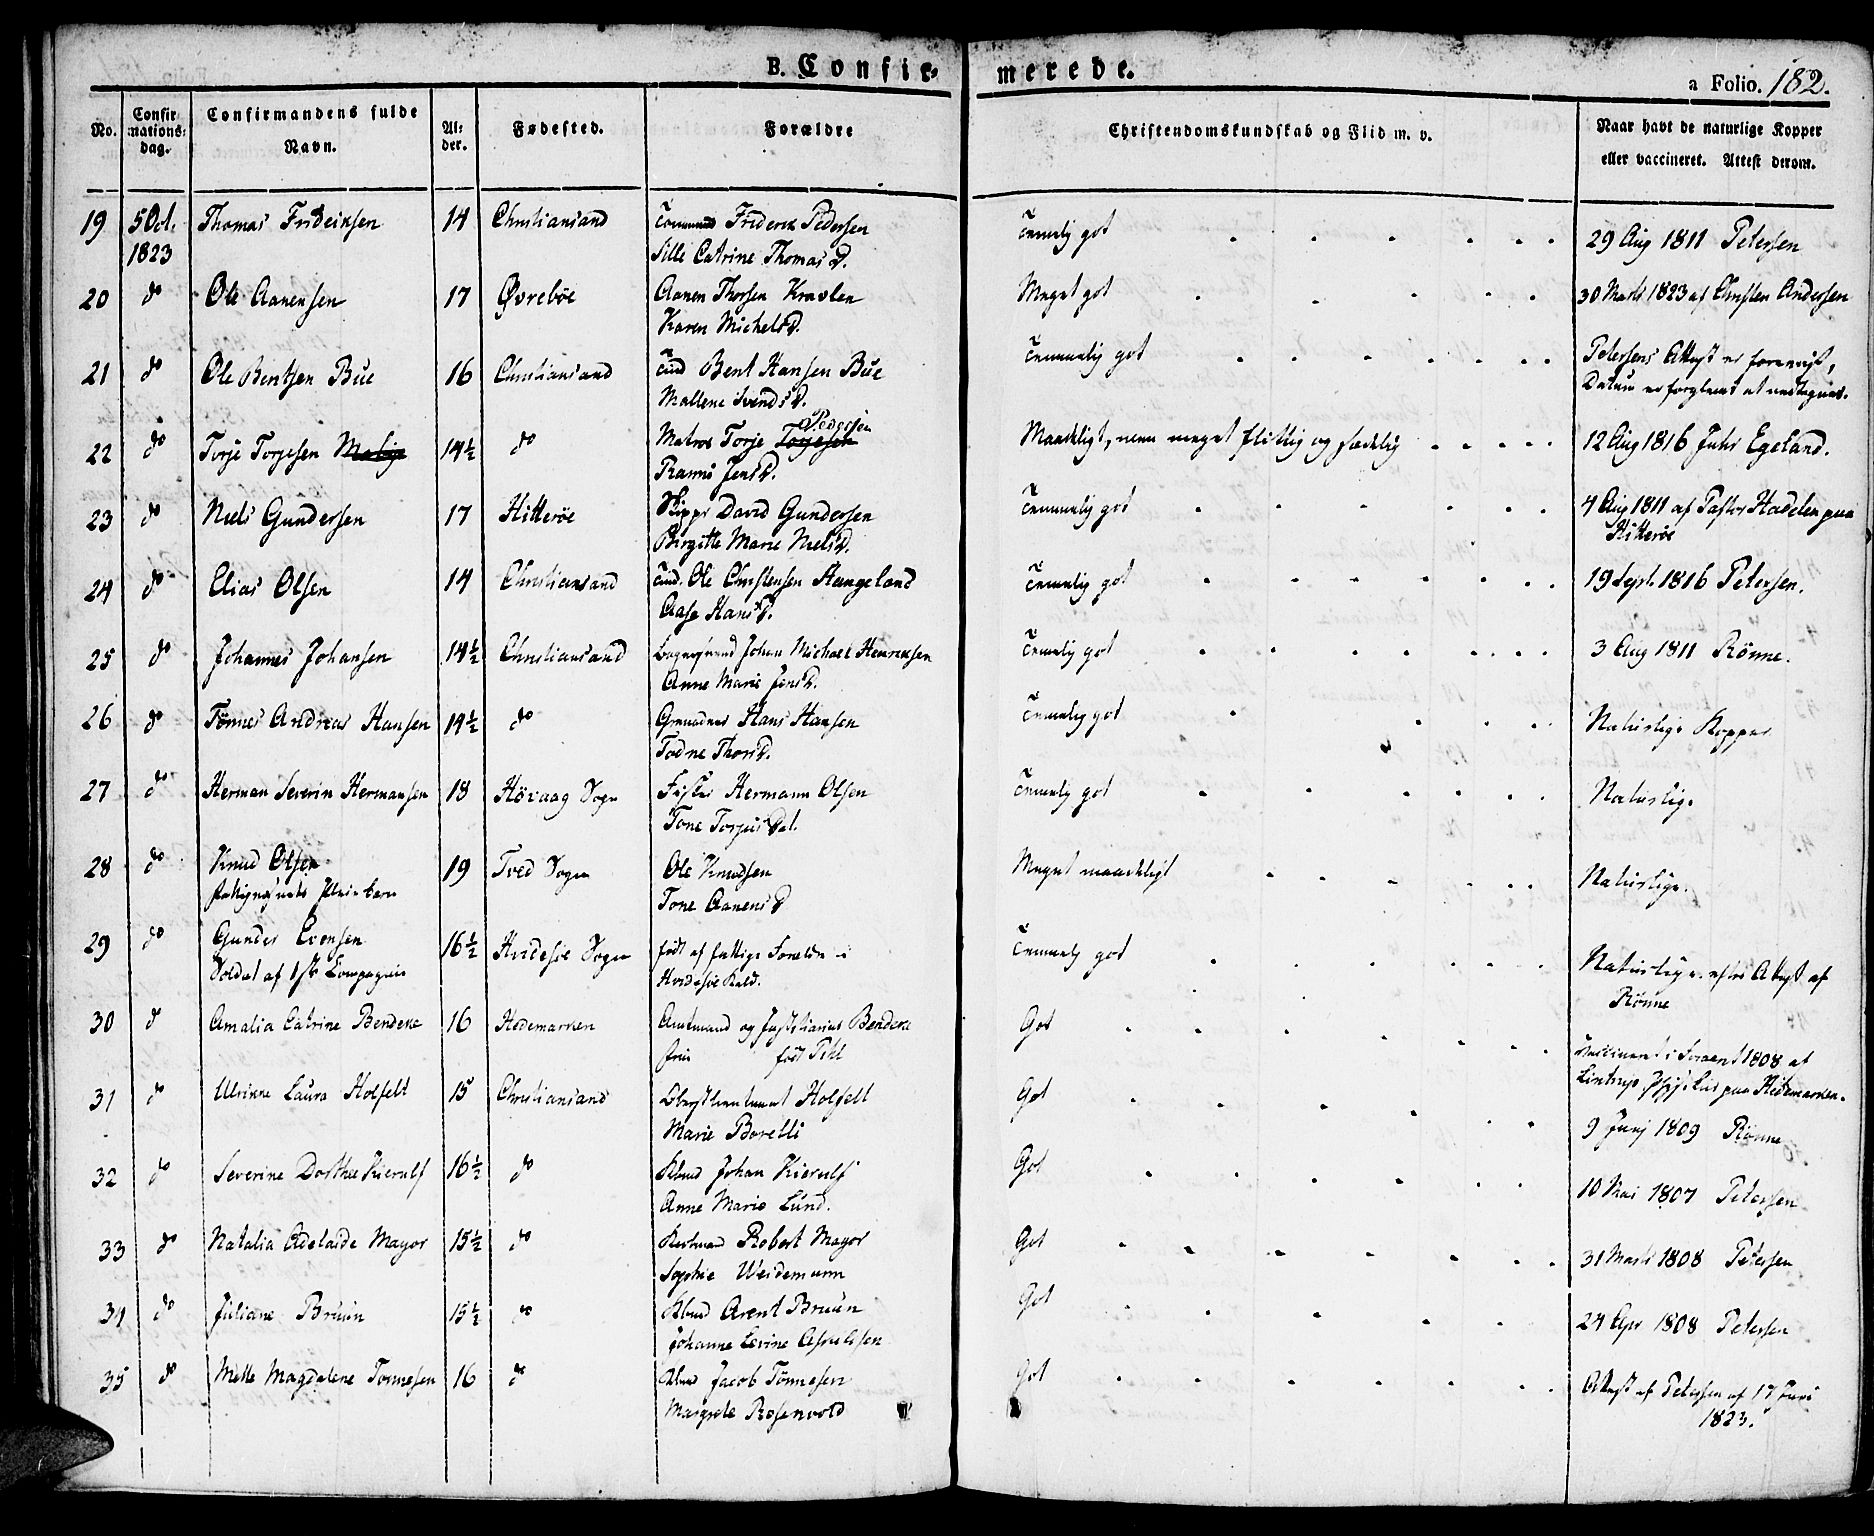 B. Confir- merede.
a Folio. 182.
No.
Confirmations-dag.
Confirmandens fulde Navn.
Alder.
Fødested.
Forældre
Christendomskundskab og Flid m. v.
Naar havt de naturlige Kopper eller vaccineret. Attest derom.
19 5 Oct. Thomas Fridriksen 14 Christiansand Friderik Pedersen Temmelig got 29 Aug 1811 Petersen
1823 Sille Catrine Thomas D.
20 do Ole Aanensen 17 Øvrebøe Aanen Thorsen Kravlen Meget got 30 Marts 1823 af Christen Andersen
Karen Michels D.
21 do Ole Bentsen Bue 16 Christiansand Bent Hansen Bue Temmelig got Petersens Attest er foreviist,
Mallene Svends D. Datum er forglemt at antegnes.
22 do Torje Torjesen 14½ do Matros Torje Pedersen Maadeligt, men meget flittig og sædelig 12 Aug 1816 Juhr Egeland.
Jens D.
23 do Niels Gundersen 17 Hitterøe Skippr David Gundersen Temmelig got 4 Aug 1811 af Pastor paa
Birgitte Marie Niels D. Hitterøe
24 do Elias Olsen 14 Christiansand Ole Christensen Stangeland Temmelig got 19 Sept. 1816 Petersen.
Aase Hans D.
25 do Johannes Johansen 14½ Christiansand Johan Michael Henriksen Temmelig got 3 Aug 1811 Rønne.
Anne Marie Jens D.
26 do Tønnes Andreas Hansen 14½ do Hans Hansen Temmelig got Naturlige Kopper
Todne Thors D.
27 do Herman Severin Hermansen 18 Høvaag Sogn Fisker Hermann Olsen Temmelig got Naturlige
Tone Torjus Dat.
28 do Knud Olsen 19 Tved Sogn Ole Knudsen Meget maadeligt Naturlige.
Tone Aanens D
29 do Gunder Evensen 16½ Hvidesøe Sogn født af fattige Forældre i Temmelig got Naturlige efter Attest af
Soldat af 1ste Compagnie Hvidesøe Kald. Rønne
30 do Amalia Catrine Bendeke 16 Hedemarken Amtmand og Justitiarius Bendeke Got Vaccineret i 1808 af
født Pihl paa Hedemarken.
31 do Ulrikke Laura Holfeldt 15 Christiansand Obristlieutenant Holfelt Got 9 Junj 1809 Rønne
Marie Borelli
32 do Severine Dorthea Kierulf 16½ do Kbmd Johan Kierulf Got 10 Mai 1807 Petersen
Anne Marie Lund.
33 do Natalia Adelaide Mayor 15½ do Robert Mayor Got 31 Marts 1808 Petersen
Sophie Weidemann
34 do Juliane Bruun 15½ do Kbmd Arent Bruun Got 24 Apr 1808 Petersen
Johanne Levine
35 do Mette Magdalene Tønnesen 16 do Kbmd Jacob Tønnesen Got Attest af Petersen af 17 Juni
Margrete Rosenvold 1823.